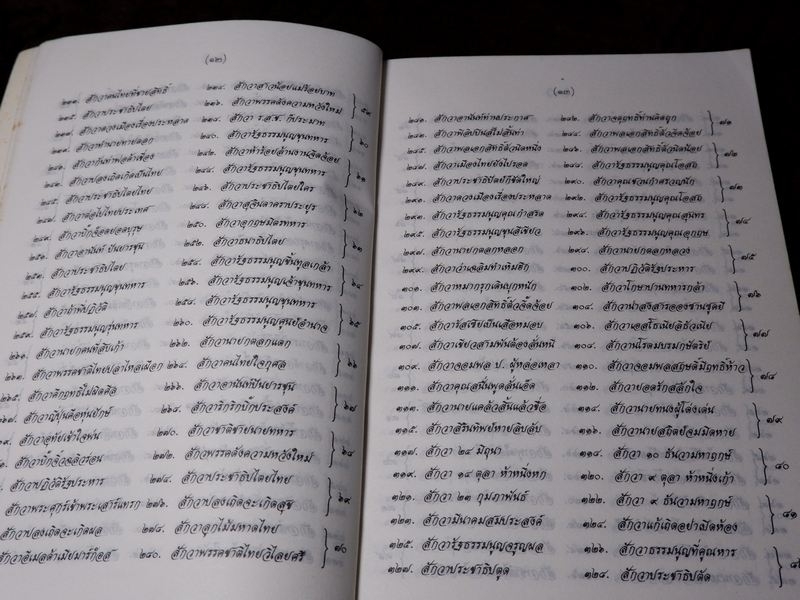 (๑๒)
๒๓๓. สักวาคนไทยที่ขายสิทธิ์ ๒๓๔. สักวาสาวน้อยแม่ร้อยบาท
๒๓๕. สักวาประชาธิปไตย ๒๓๖. สักวาพรรคดังความหวังใหม่ ๕๙
๒๓๗. สักวาดวงเมืองเรื่องประหลาด ๒๓๘. สักวา ร.ส.ช. ก็ประมาท
๒๓๙. สักวานายกตลก ๒๔๐. สักวารัฐธรรมนูญขุนทหาร ๖๐
๒๔๒. สักวาทำร้อยล้านงานจิ๊ดจ้อย
๒๔๓. สักวาปลงเถิดเกิดเป็นไทย ๒๔๔. สักวารัฐธรรมนูญขุนทหาร ๖๑
๒๔๕. สักวาประชาธิปไตยไทย ๒๔๖. สักวาประชาธิปไตยใคร
๒๔๗. สักวาต่อไปไทยประเทศ ๒๔๘. สักวาสุจินดาคราประยูร ๖๒
๒๔๙. สักวาบิ๊กจ๊อดยอดบุรุษ ๒๕๐. สักวาอุกฤษมิตรทหาร
๒๕๑. สักวาอานันท์ ปันยารชุน ๒๕๒. สักวาธนาธิปไตย ๖๓
๒๕๓. สักวาประชาธิปไตย ๒๕๔. สักวารัฐธรรมนูญขึ้นทูลเกล้า
๒๕๕. สักวารัฐธรรมนูญขุนทหาร ๒๕๖. สักวารัฐธรรมนูญเจ้าขุนทหาร ๖๔
๒๕๗. สักวาถ้าที่ปฏิวัติ ๒๕๘. สักวารัฐธรรมนูญขุนทหาร
๒๕๙. สักวารัฐธรรมนูญรุ่นทหาร ๒๖๐. สักวารัฐธรรมนูญศูนย์อำนาจ ๖๕
๒๖๑. สักวานายกคนที่สิบเก้า ๒๖๒. สักวานายกตลกแดก
๒๖๓. สักวาพรรคชาติไทยปลาไหลเผือก ๒๖๔. สักวาคนไทยใจกุศล ๖๖
๒๖๕. สักวาศึกฤทธิ์ไม่ผิดศีล ๒๖๖. สักวาอานันท์ปันยารชุน
๒๖๗. สักวาญี่ปุ่นคือหุ่นยักษ์ ๒๖๘. สักวาริกริกบิ๊กประสงค์ ๖๗
๒๖๙. สักวาอุทัยเช้าใจพ่น ๒๗๐. สักวาชาติชายนายทหาร
สักวาบิ๊กจิ๋วฉลิวร่อน ๒๗๒. สักวาพรรคดังความหวังใหม่ ๖๘
สักวาปฏิวัติรัฐประหาร ๒๗๔. สักวาประชาธิปไตยไทย
สักวาพระศุกร์เข้าพระเสาร์แทรก ๒๗๖. สักวาปลงเถิดจะเกิดสุข ๖๙
สักวาปลงเถิดจะเกิดผล ๒๗๘. สักวาลูกไม้มหาดไทย
สักวาอิเมลด้าเมียมาร์ก็อส ๒๘๐. สักวาพรรคชาติไทยวิไลยศรี ๗๐
(๑๓)
๒๘๑. สักวาอานันท์ท่านประกาศ ๒๘๒. สักวาจตุฤทธิ์ท่านคิดถูก ๗๑
๒๘๓. สักวาฟิลิปปินส์ไม่สิ้นท่า ๒๘๔. สักวาพลเอกสิทธิ์ตัวจิ๊ดจ้อย
๒๘๕. สักวาพลเอกสิทธิ์ตัวนิดหนึ่ง ๒๘๖. สักวาพลเอกสิทธิ์ตัวนิดน้อย ๗๒
๒๘๗. สักวาเมืองไทยยังโปรดล ๒๘๘. สักวารัฐธรรมนูญคุณโอสถ
๒๘๙. สักวาประชาธิปัตย์ก็ชัดใหญ่ ๒๙๐. สักวาคุณชวนก้าครวญนัก ๗๓
๒๙๑. สักวาดวงเมืองเรื่องประหลาด ๒๙๒. สักวารัฐธรรมนูญคุณโอสถ
๒๙๓. สักวารัฐธรรมนูญคุณกำสรด ๒๙๔. สักวารัฐธรรมนูญคุณสุนทร ๗๔
๒๙๕. สักวารัฐธรรมนูญขุนสีเขียว ๒๙๖. สักวารัฐธรรมนูญคุณอุกฤษ
๒๙๗. สักวานายกตลกหลอก ๒๙๘. สักวานายกตลกหลวง ๗๕
๒๙๙. สักวาว่าเฉลิมทำเหิมฮึก ๓๐๐. สักวาปฏิวัติรัฐประหาร
๓๐๑. สักวาหมากรุกเดินบุกหนัก ๓๐๒. สักวาไกษาปานทหารกล้า ๗๖
๓๐๓. สักวาพลเอกสิทธิ์ตัวจิ๊ดจ้อย ๓๐๔. สักวาน่าสงสารอองซานซูคยี
๓๐๕. สักวารัสเซียเป็นเสือหมอบ ๓๐๖. สักวาเอสโธเนียลิธัวเนีย ๗๗
๓๐๗. สักวาเขียวสามพันต้องดันหนี ๓๐๘. สักวานโรดมบรมกษัตริย์
๓๐๙. สักวาจอมพล ป. ผู้หล่อเหลา ๓๑๐. สักวาจอมพลสฤษดิ์มีฤทธิ์ห้าว ๗๘
๓๑๑. สักวาคุณสนั่นพูดลั่นเอ็ด ๓๑๒. สักวายอดรักสลักใจ
๓๑๓. สักวานายแคล้วสิ้นแล้วชื่อ ๓๑๔. สักวานายทนงผู้โด่งเด่น ๗๙
๓๑๕. สักวาสิรินทิพย์หายลิบลับ ๓๑๖. สักวานายสถิตย์จมมิดหาย
๓๑๗. สักวา ๒๔ มิถุนา ๓๑๘. สักวา ๑๐ ธันวามหาฤกษ์ ๘๐
๓๑๙. สักวา ๑๔ ตุลา ห้าหนึ่งหก ๓๒๐. สักวา ๙ ตุลา ห้าหนึ่งเก้า
๓๒๑. สักวา ๒๓ กุมภาพันธ์ ๓๒๒. สักวา ๙ ธันวามหาฤกษ์ ๘๑
๓๒๓. สักวามีนาคมสมประสงค์ ๓๒๔. สักวาแก้เถิดอย่าเปิดห้อง
๓๒๕. สักวารัฐธรรมนูญจรูญผล ๓๒๖. สักวาธรรมนูญที่คุณหาร
๓๒๗. สักวาประชาธิปตูด ๓๒๘. สักวาประชาธิปตัด